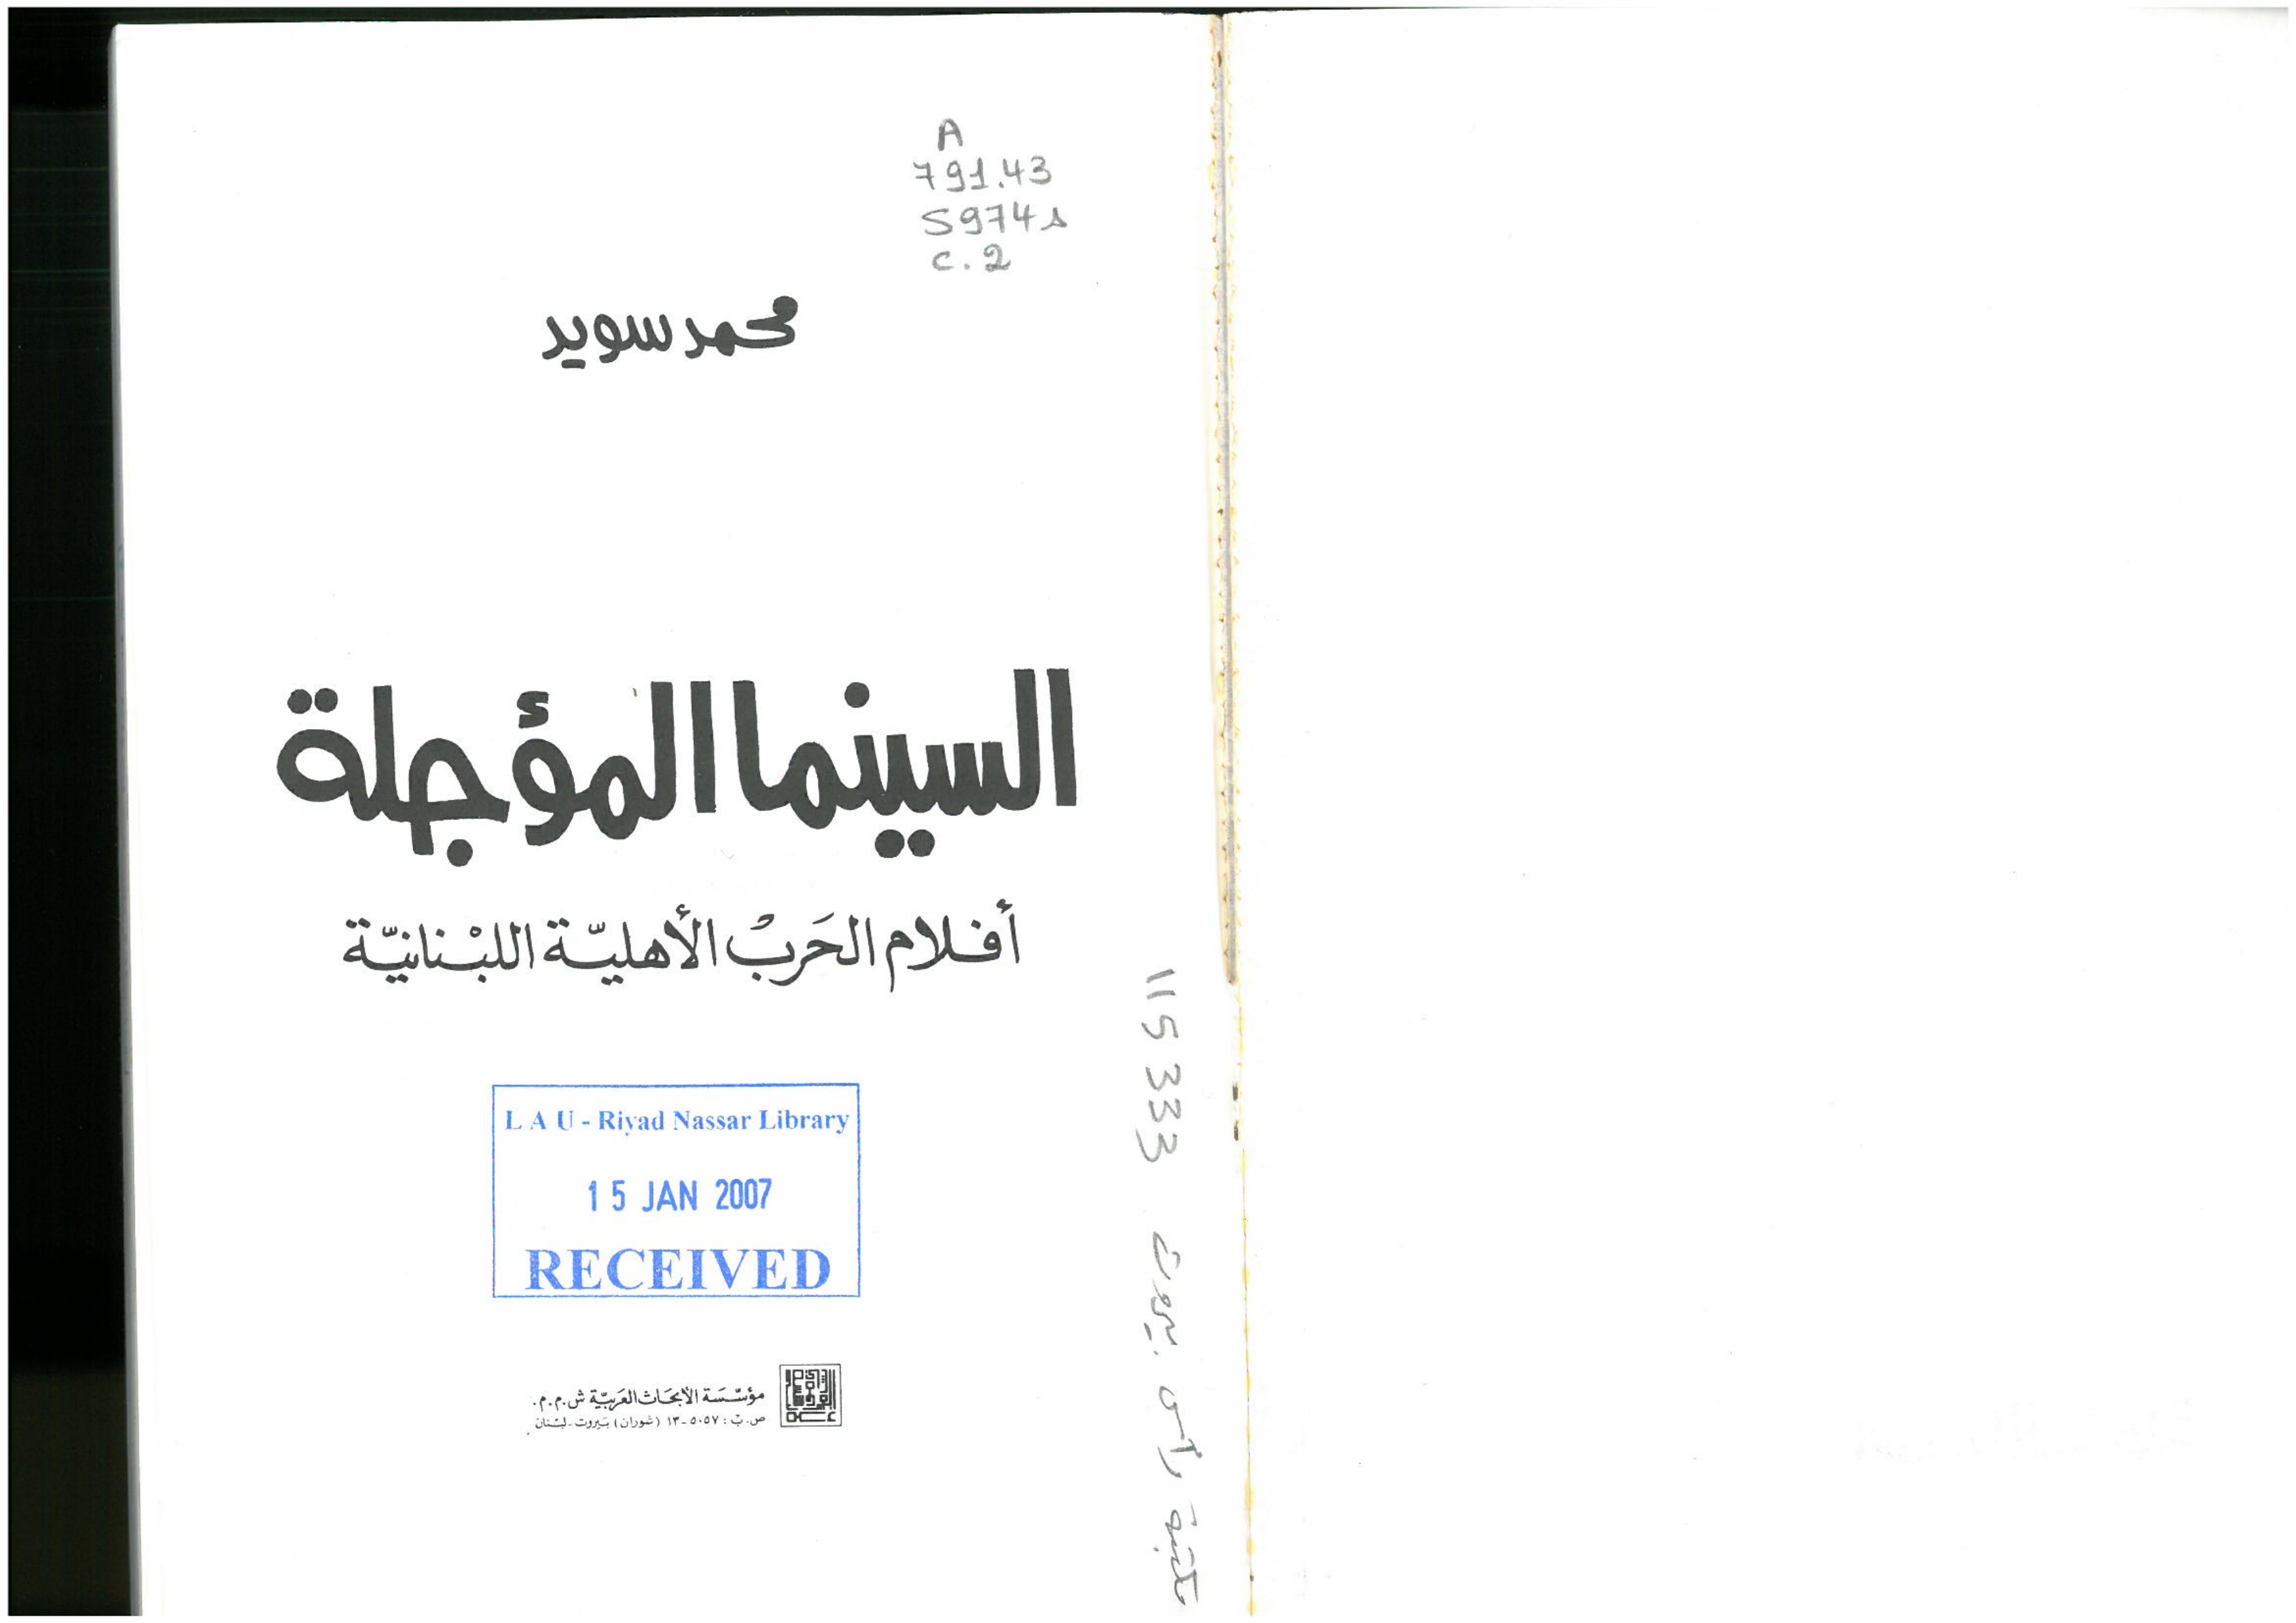 A
791.43
S974s
c.2
محمد سويد
السينما المؤجلة
أفلام الحَربْ الأهليّة اللبْنانيّة
L A U - Riyad Nassar Library
15 JAN 2007
RECEIVED
مؤسّسَة الأبحَاث العَربيّة ش.م.م.
ص.ب: ٥٠٥٧-١٣ (شوران) بَيروت - لبْنان
115333 مكتبة رأس بيروت